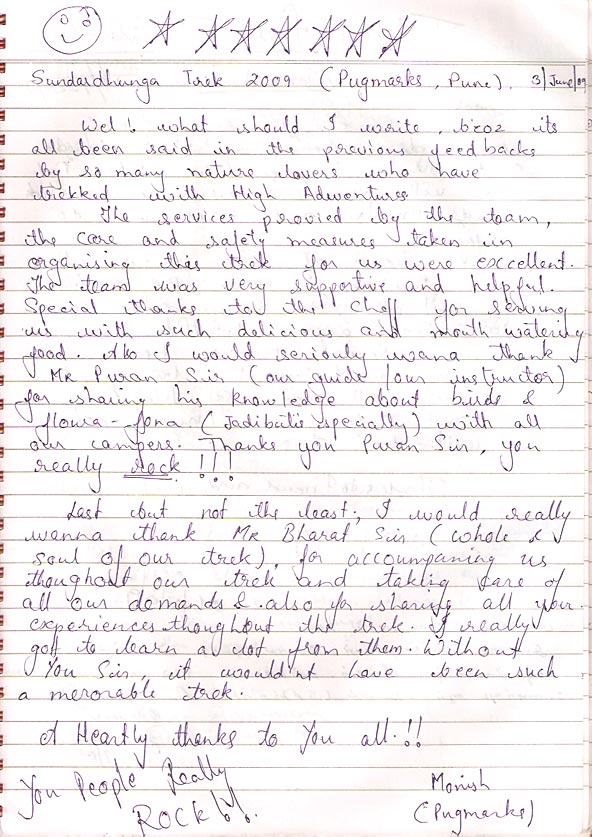 Sundardhunga Trek 2009 (Pugmarks, Pune). 3/June/09
Wel! what should I write, bcoz its
all been said in the previous feedbacks
by so many nature lovers who have
trekked with High Adventures
The services provied by the team,
the care and safety measures taken in
organising this trek for us were excellent.
The team was very supportive and helpful.
Special thanks to the Cheff for serving
us with such delicious and mouth watering
food. Also I would seriouly wana thank
Mr Puran Sir (our guide/our instructor)
for sharing his knowledge about birds &
flowra-fona (Jadibutis specially) with all
our campers. Thanks you Puran Sir, you
really rock!!!
Last but not the least, I would really
wanna thank Mr Bharat Sir (whole &
soul of our trek), for accompaning us
thoughout our trek and takiig care of
all our demands & also for sharing all your
experiences thoughout the trek. I really
gott to learn a lot from them. Without
You Sir, it would'nt have been such
a merorable trek.
A Heartly thanks to You all.!!
You People Really
ROCK!!.
Monish
(Pugmarks)